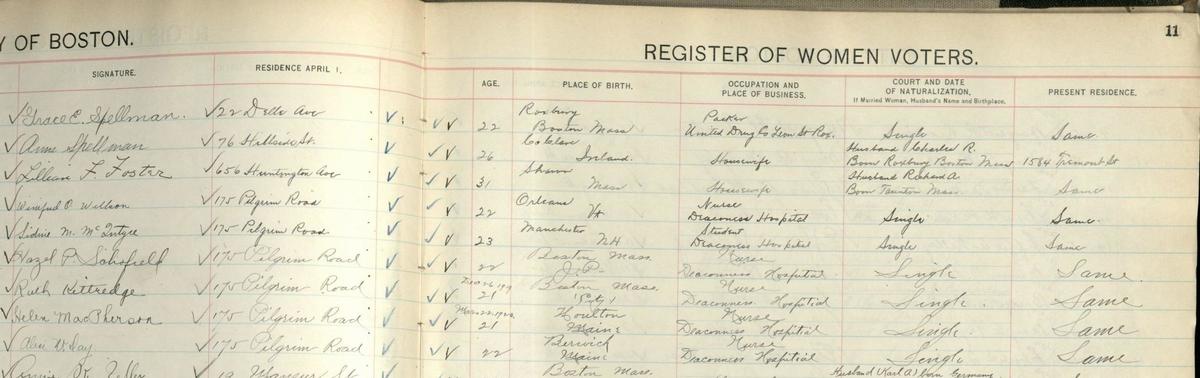 Y OF BOSTON.
REGISTER OF WOMEN VOTERS.
11
SIGNATURE.
RESIDENCE APRIL 1,
AGE.
PLACE OF BIRTH.
OCCUPATION AND PLACE OF BUSINESS.
COURT AND DATE OF NATURALIZATION. If Married Woman, Husband's Name and Birthplace.
PRESENT RESIDENCE.
Grace E. Spellman. 22 Ave 22 Roxbury Boston Mass Packer United Drug Co Leon St Rox. Single Same
Anne Spellman 76 Hillside St. 26 Ireland. Housewife Husband Charles R. Born Roxbury Boston Mass 1564 Tremont St
Lillian F. Foster 656 Huntington Ave 31 Sharon Mass Housewife Husband Richard A. Born Taunton Mass. Same
Winifred O. 175 Pilgrim Road 22 Orleans Vt Nurse Deaconess Hospital Single Same.
M. McIntyre 175 Pilgrim Road 23 Manchester NH Student Deaconess Hospital Single Same
Hazel P. Schofield 175 Pilgrim Road 22 Boston Mass. J.P. Nurse Deaconness Hospitial Single Same
Ruth Kittredge 175 Pilgrim Road 21 Boston Mass. Nurse Deaconness Hospitial Single. Same
Helen MacPherson 175 Pilgrim Road 21 Houlton Maine Nurse Deaconness Hospitial Single. Same
175 Pilgrim Road 22 Berwick Maine Nurse Deaconness Hospitial Single Same
19 St. Boston Mass. Husband (Karl A) born Germany